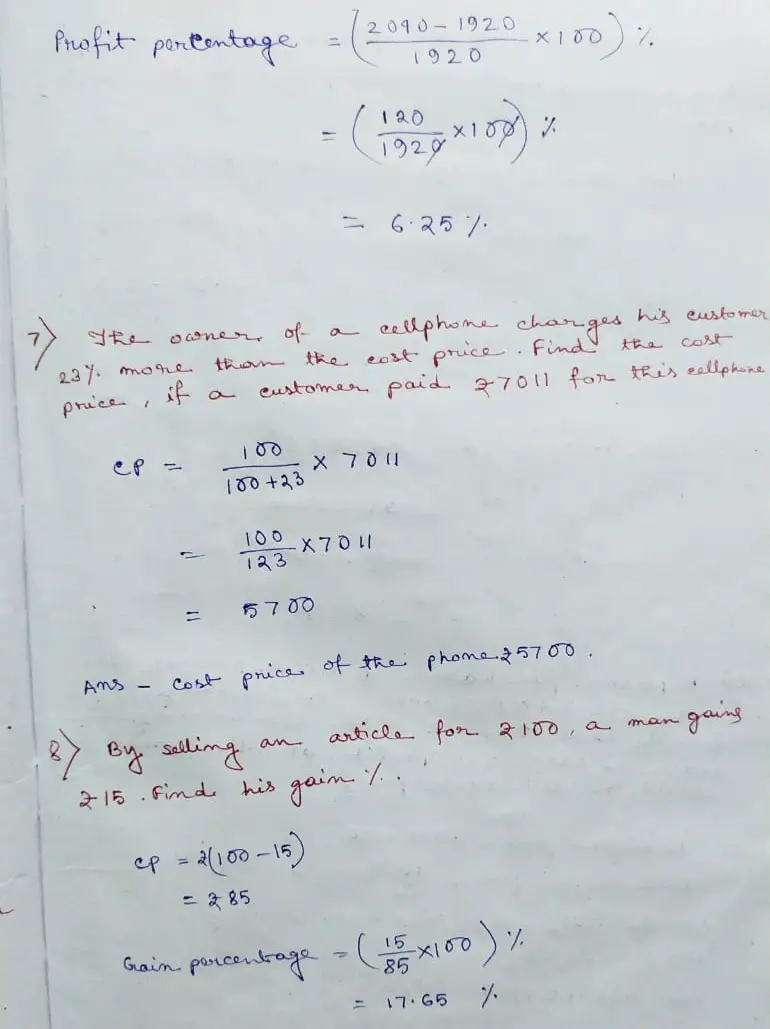 Profit percentage = (2090 - 1920 / 1920 × 100) %
= (120 / 1920 × 100) %
= 6.25 %
7) The owner of a cellphone charges his customer
23% more than the cost price. Find the cost
price, if a customer paid ₹7011 for this cellphone
CP = 100 / 100+23 × 7011
= 100 / 123 × 7011
= 5700
Ans - Cost price of the phone ₹5700.
8) By selling an article for ₹100, a man gains
₹15. Find his gain %.
CP = ₹(100 - 15)
= ₹85
Gain percentage = (15 / 85 × 100) %
= 17.65 %